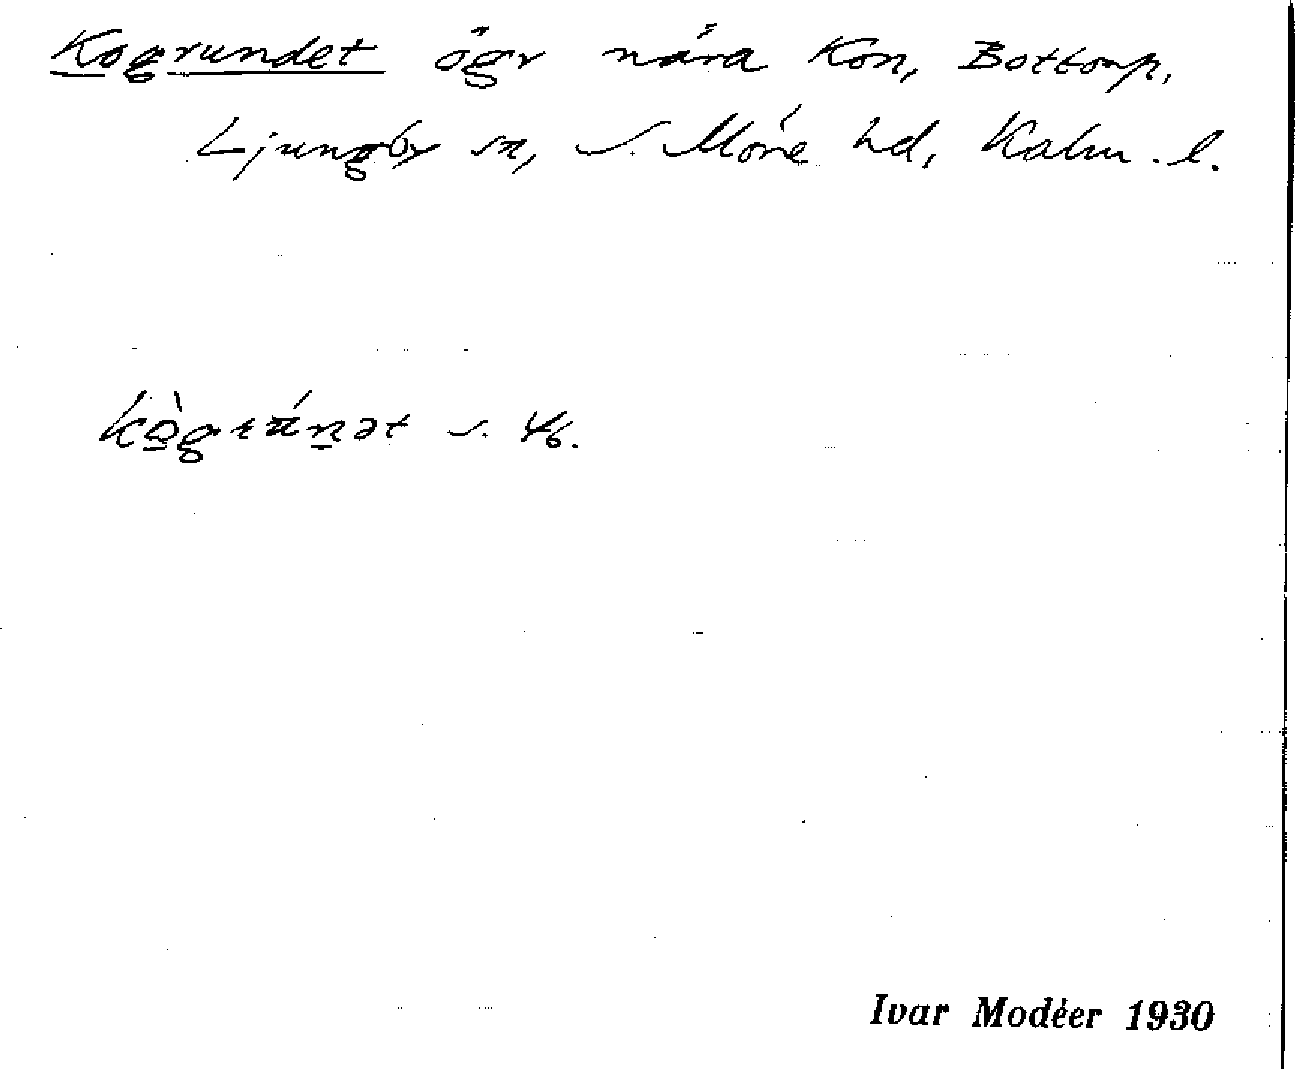 Kogrundet ögr nära Kon, Bottorp,
Ljungby sn, S. Möre hd, Kalm. l.
s. 4/6.
Ivar Modéer 1930